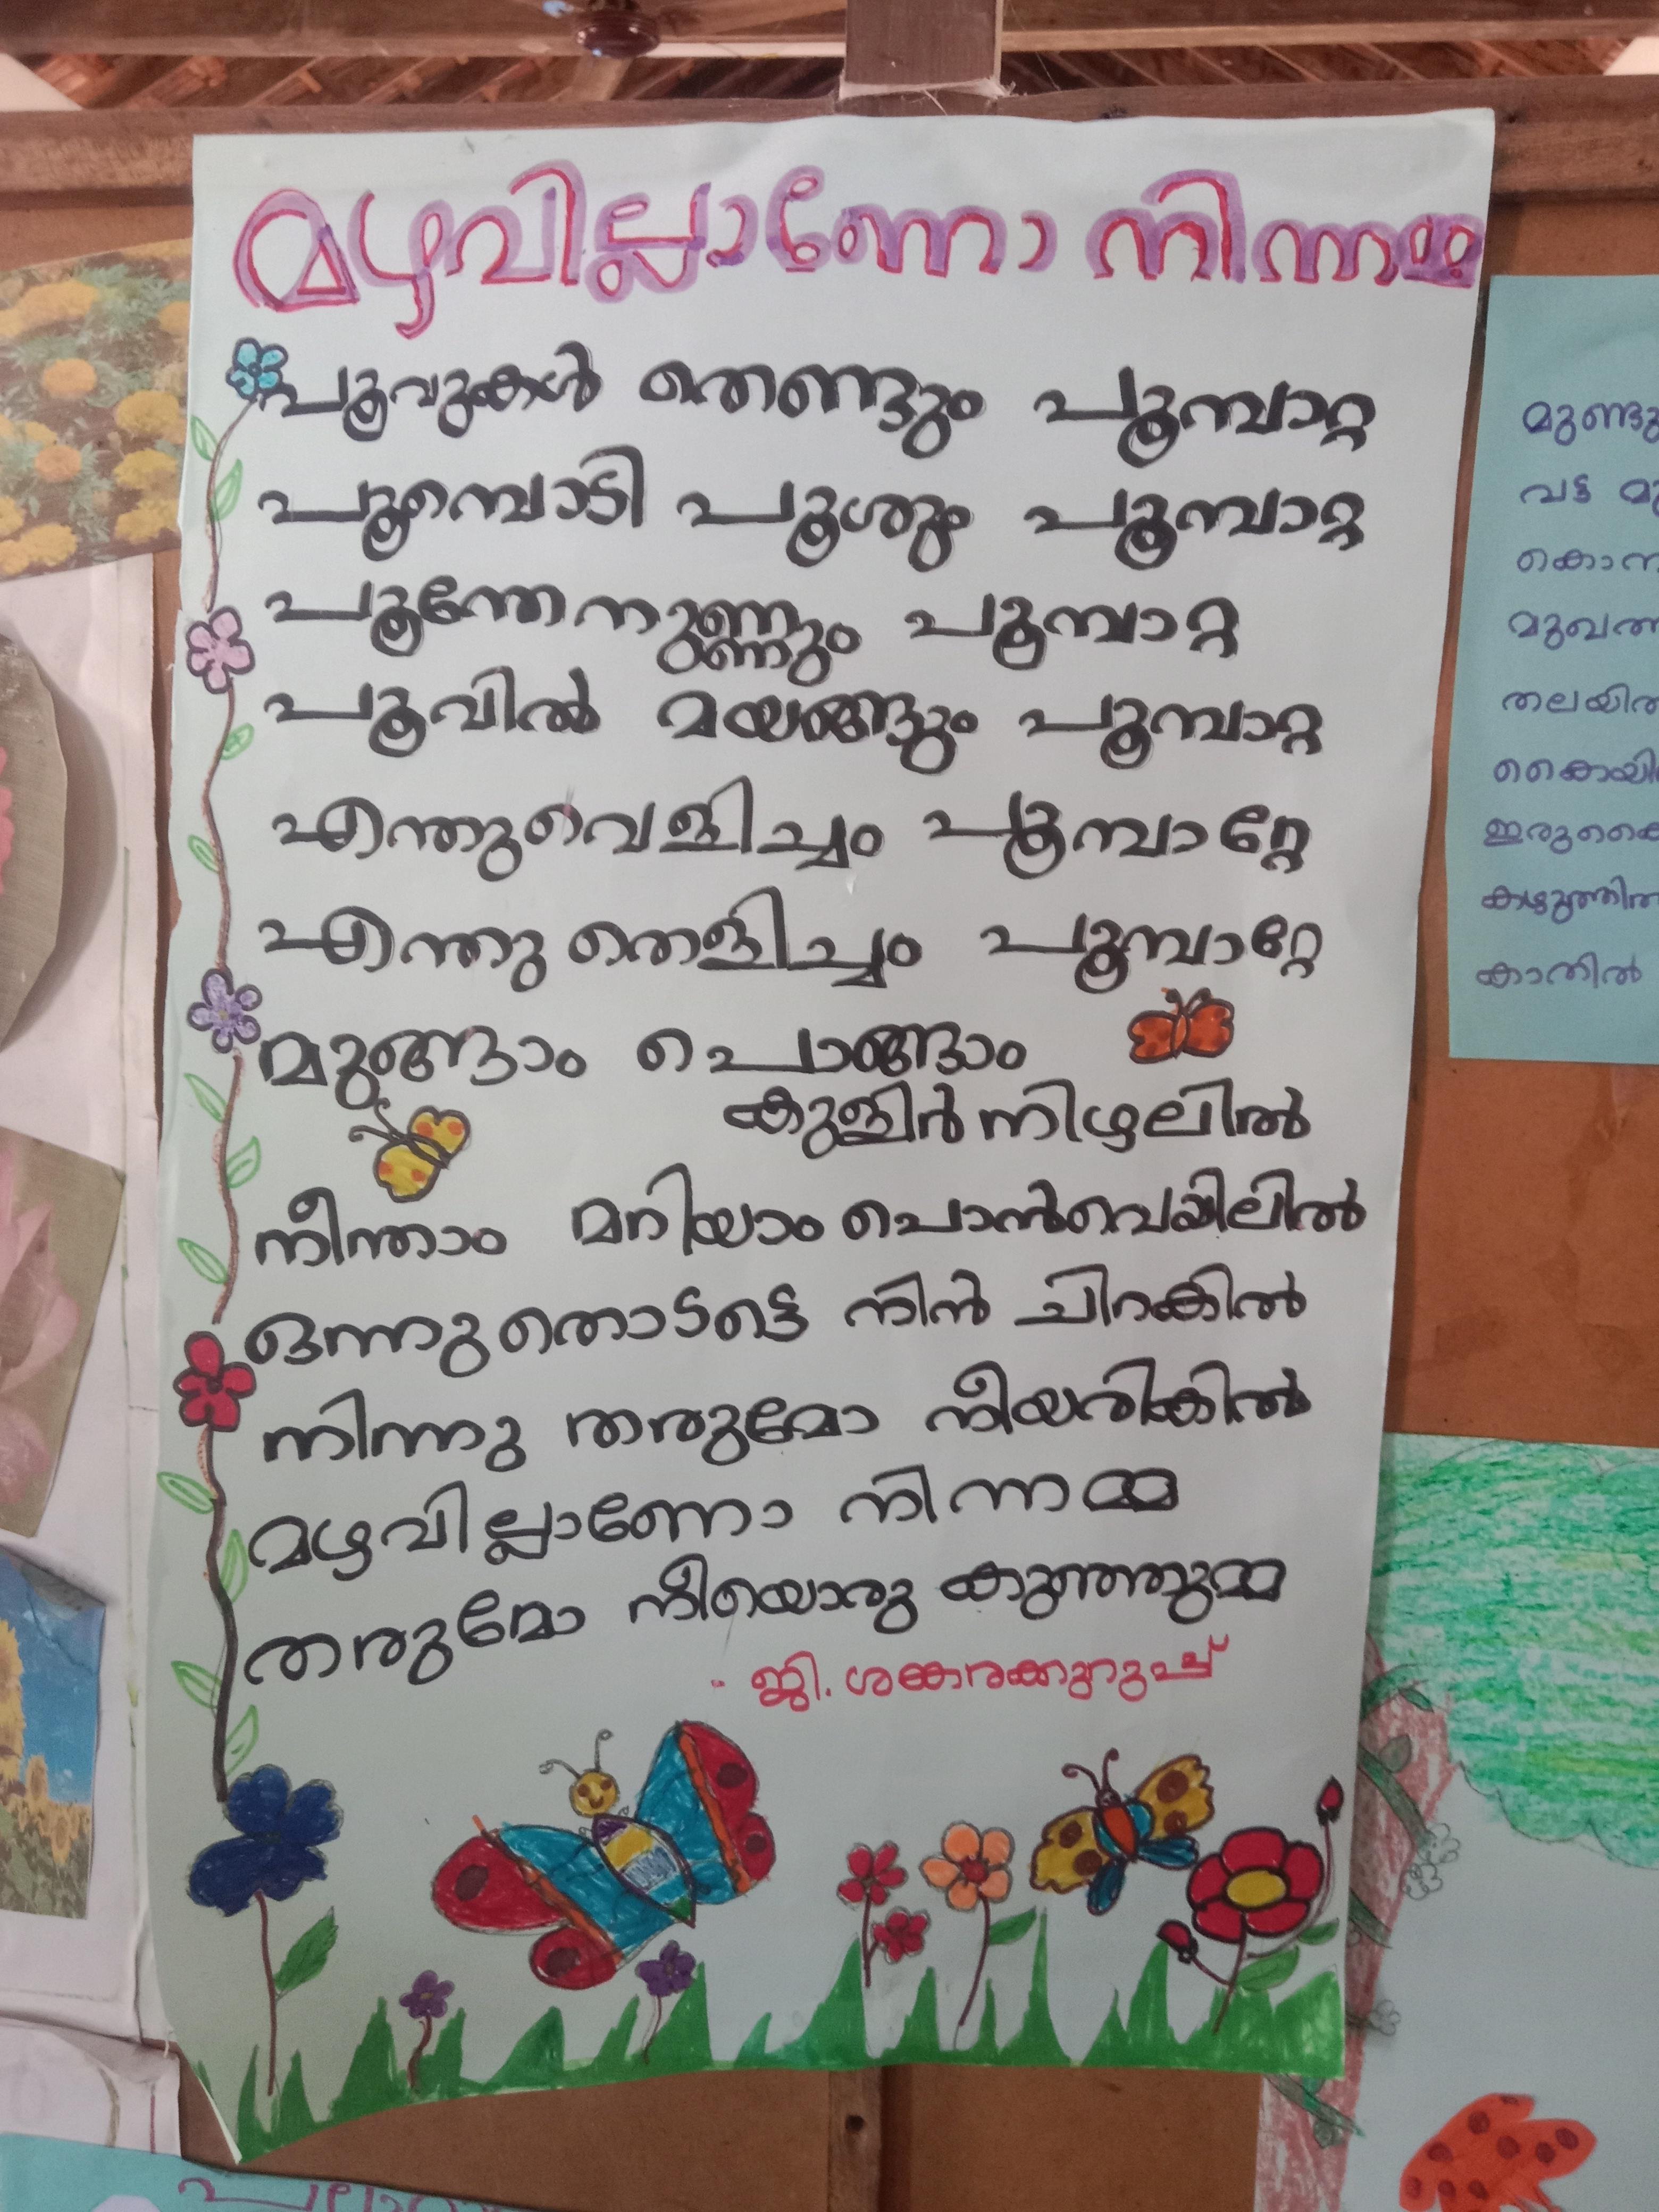 മഴവില്ലാണോ നിന്നമ്മ
പൂവുകൾ തെണ്ടും പൂമ്പാറ്റ
പൂമ്പൊടി പൂശും പൂമ്പാറ്റ
പൂന്തേനുണ്ണും പൂമ്പാറ്റ
പൂവിൽ മയങ്ങും പൂമ്പാറ്റ
എന്തുവെളിച്ചം പൂമ്പാറ്റേ
എന്തു തെളിച്ചം പൂമ്പാറ്റേ
മുങ്ങാം പൊങ്ങാം
കുളിർനിഴലിൽ
നീന്താം മറിയാം പൊൻവെയിലിൽ
ഒന്നുതൊടട്ടെ നിൻ ചിറകിൽ
നിന്നു തരുമോ നീയരികിൽ
മഴവില്ലാണോ നിന്നമ്മ
തരുമോ നീയൊരു കുഞ്ഞുമ്മ
- ജി. ശങ്കരക്കുറുപ്പ്
വട്ട
തലയിൽ
കാതിൽ